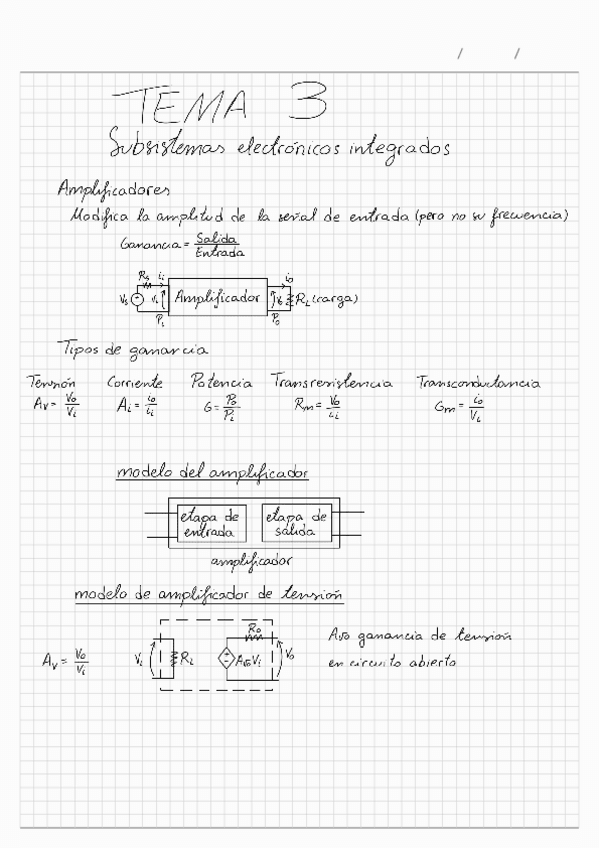 / /
TEMA 3
Subsistemas electrónicos integrados
Amplificadores
Modifica la amplitud de la señal de entrada (pero no su frecuencia)
Ganancia = Salida / Entrada
Rs ii io
Vs Vi Amplificador Vo RL (carga)
Pi Po
Tipos de ganancia
Tensión Corriente Potencia Transresistencia Transconductancia
Av = Vo / Vi Ai = io / ii G = Po / Pi Rm = Vo / ii Gm = io / Vi
modelo del amplificador
etapa de entrada etapa de salida
amplificador
modelo de amplificador de tensión
Av = Vo / Vi Vi Ri Ro AvoVi Vo
Avo ganancia de tensión
en circuito abierto